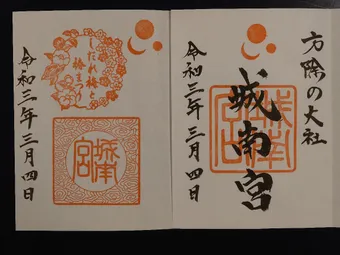 しだれ梅
椿まつり
城南宮
令和三年三月四日
方除の大社
城南宮
城南宮
令和三年三月四日